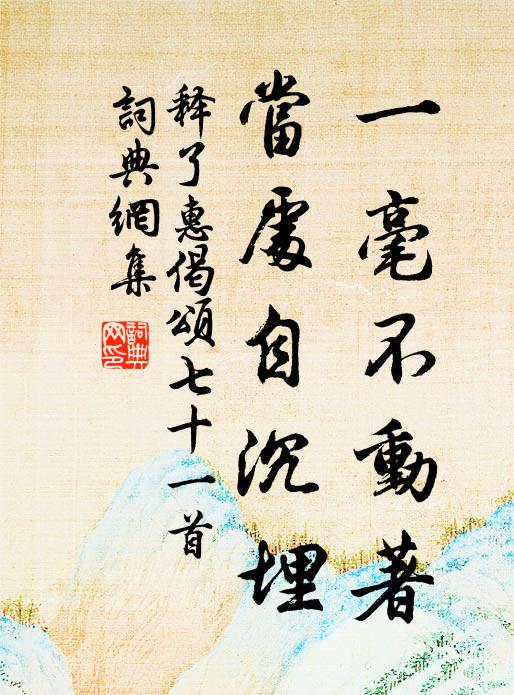 一毫不動著
當處自沉埋
释了惠偈頌七十一首
詞典網集
詞典
网印